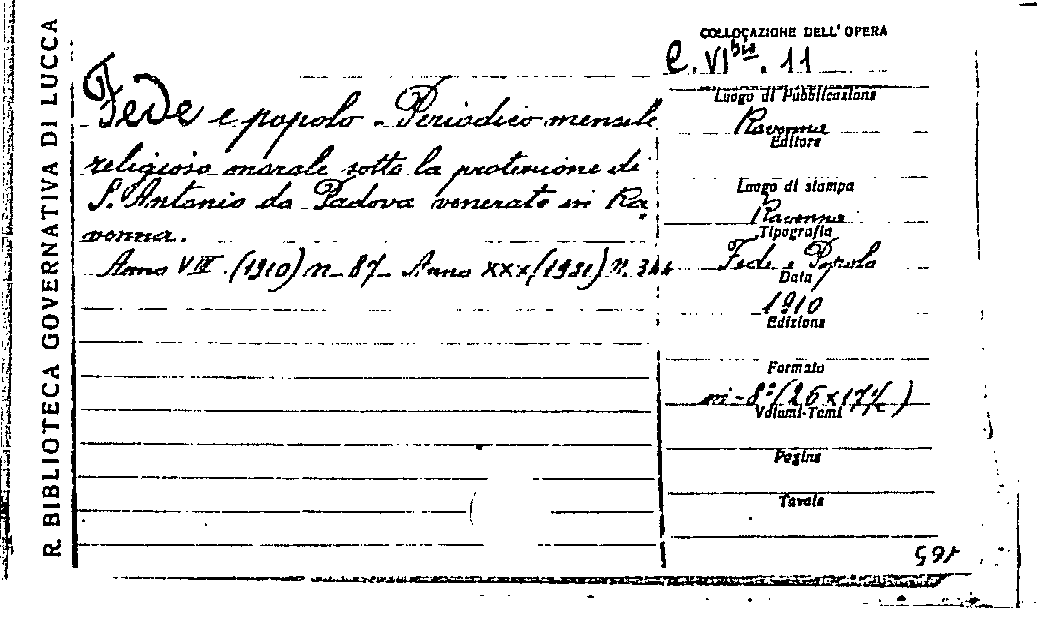 R. BIBLIOTECA GOVERNATIVA DI LUCCA
Fede e popolo - Periodico mensile
religioso morale sotto la protezione di
S. Antonio da Padova venerato in Ra-
venna.
Anno VIII (1910) n. 87 - Anno XXX (1931) n.
COLLOCAZIONE DELL'OPERA
C. VI bis. 11
Luogo di Pubblicazione
Ravenna
Editore
Luogo di stampa
Ravenna
Tipografia
Fede e Popolo
Data
1910
Edizione
Formato
in-8° (26 x 17 1/2)
Volumi-Tomi
Pagine
Tavole
165